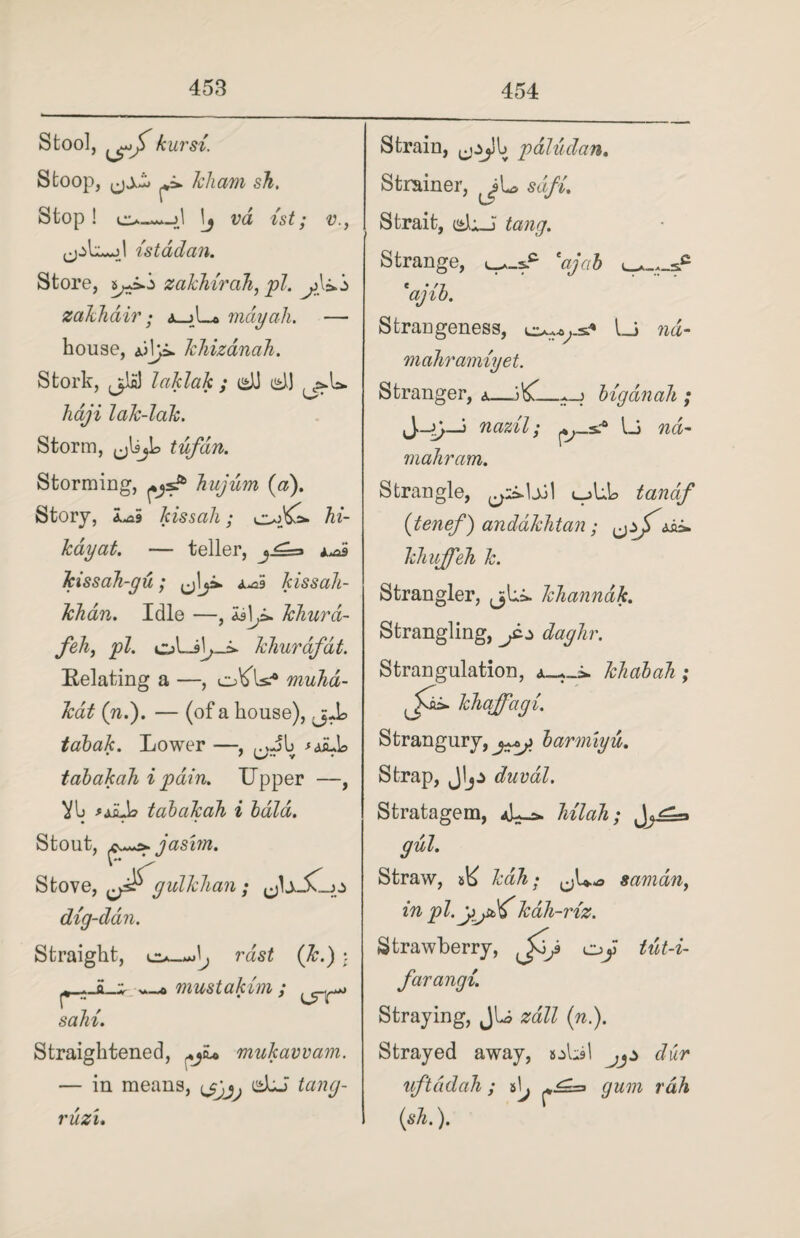 453
Stool, کرسی kursí.
Stoop, خم شدن kham sh.
Stop! وا ایست vá íst; v.,
ایستادن ístádan.
Store, ذخیره zakhírah, pl. ذخایر
zakháir; مایه máyah. —
house, خزانه khizánah.
Stork, لقلق laklak; حاجی لك لك
háji lak-lak.
Storm, طوفان túfán.
Storming, هجوم hujúm (a).
Story, قصة kissah; حکایت hi-
káyat. — teller, قصه گو
kissah-gú; قصه خوان kissah-
khán. Idle —, خرافة khurá-
feh, pl. خرافات khuráfát.
Relating a —, محاکات muhá-
kát (n.). — (of a house), طبق
tabak. Lower —, طبقهٔ پائین
tabakah i páin. Upper —,
طبقهٔ بالا tabakah i bálá.
Stout, جسیم jasím.
Stove, گلخن gulkhan; دیگدان
díg-dán.
Straight, راست rást (k.);
مستقیم mustakím; سهی
sahí.
Straightened, مقوم mukavvam.
— in means, تنك روزی tang-
rúzí.
454
Strain, پالودن pálúdan.
Strainer, صافی sáfí.
Strait, تنك tang.
Strange, عجب 'ajab عجیب
'ajíb.
Strangeness, نا محرمیت ná-
mahramíyet.
Stranger, بیگانه bígánah;
نزیل nazíl; نا محرم ná-
mahram.
Strangle, طناف انداختن tanáf
(tenef) andákhtan; خفه کردن
khuffeh k.
Strangler, خناق khannák.
Strangling, دغر daghr.
Strangulation, خبه khabah;
خفگی khaffagí.
Strangury, برمیو barmíyú.
Strap, دوال duvál.
Stratagem, حیله hílah; گول
gúl.
Straw, کاه káh; سمان samán,
in pl. کاهریز káh-ríz.
Strawberry, توت فرنگی tút-i-
farangí.
Straying, ضال záll (n.).
Strayed away, دور افتاده dúr
uftádah; گم راه gum ráh
(sh.).